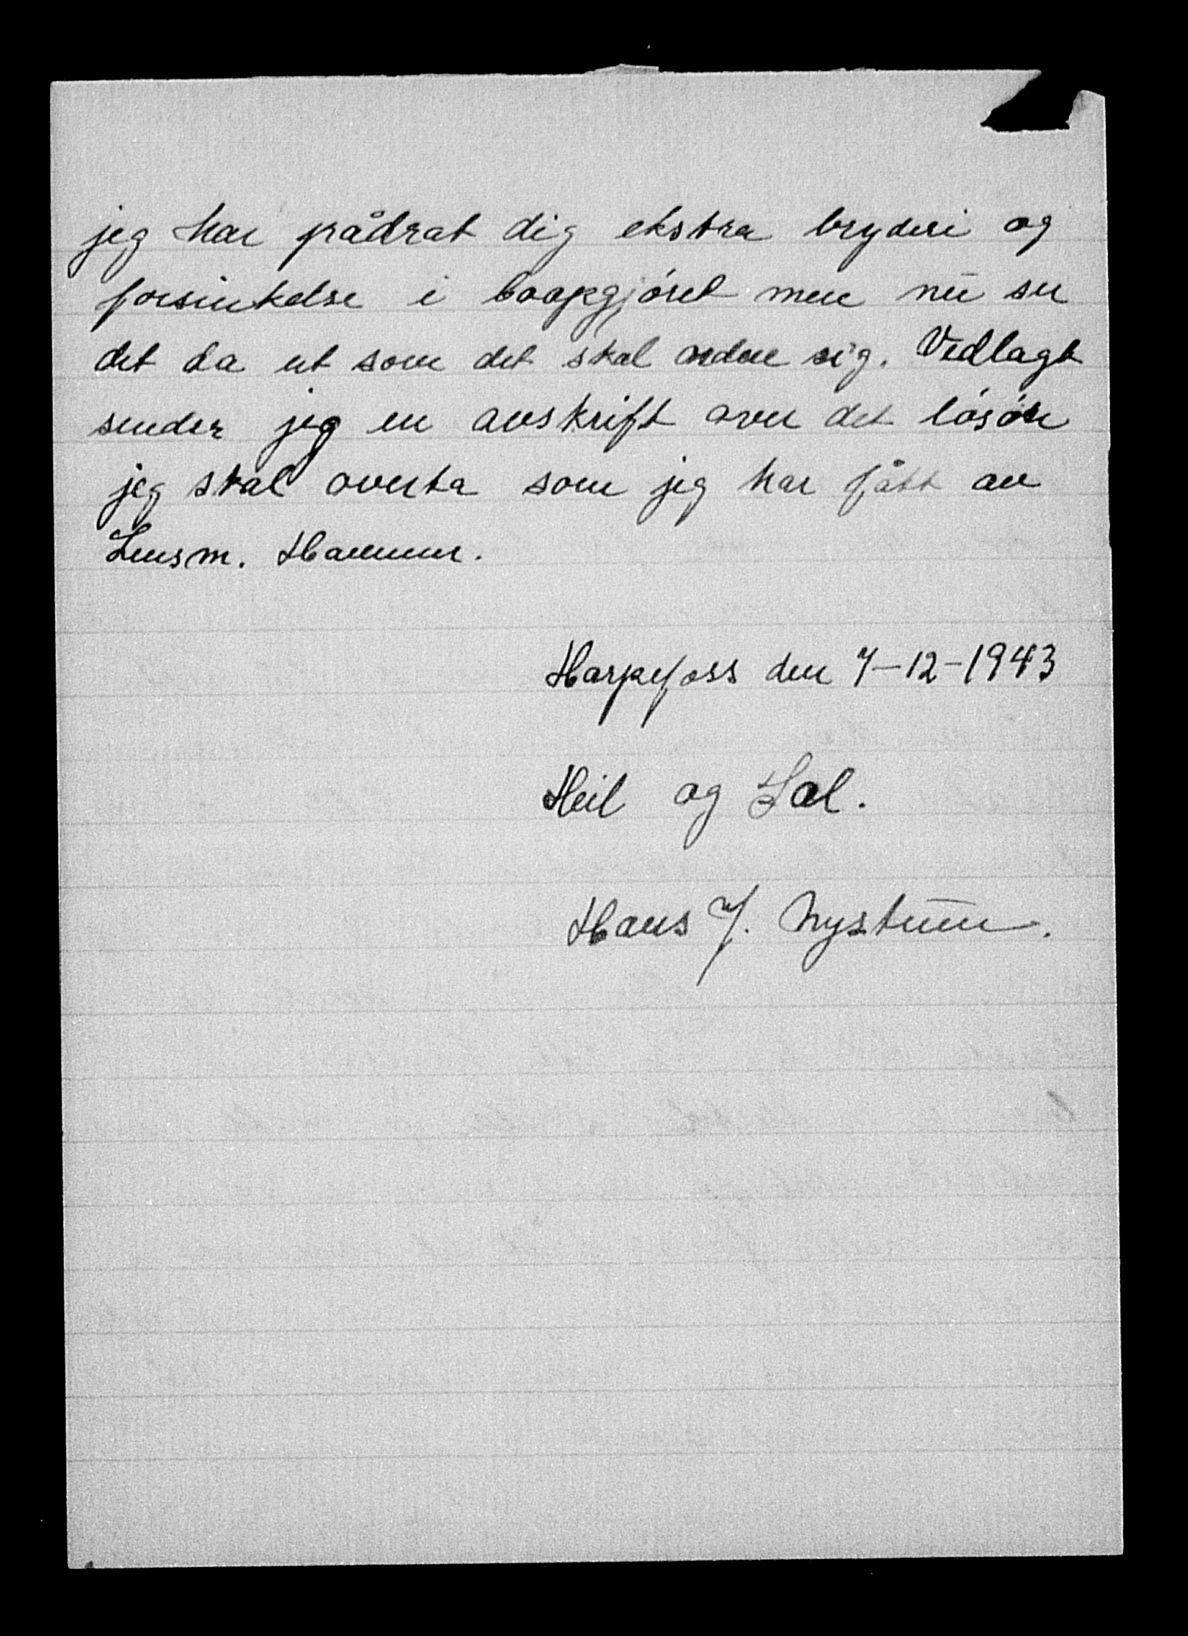 jeg har pådrat dig ekstra bryderi og
forsinkelse i boopgjöret men nu ser
det da ut som det skal ordne sig. Vedlagt
sender jeg en avskrift over det lösöre
jeg skal overta som jeg har fått av
Lensm. Hammer.
Harpefoss den 7-12-1943
Heil og Sæl.
Hans J. Nystuen.